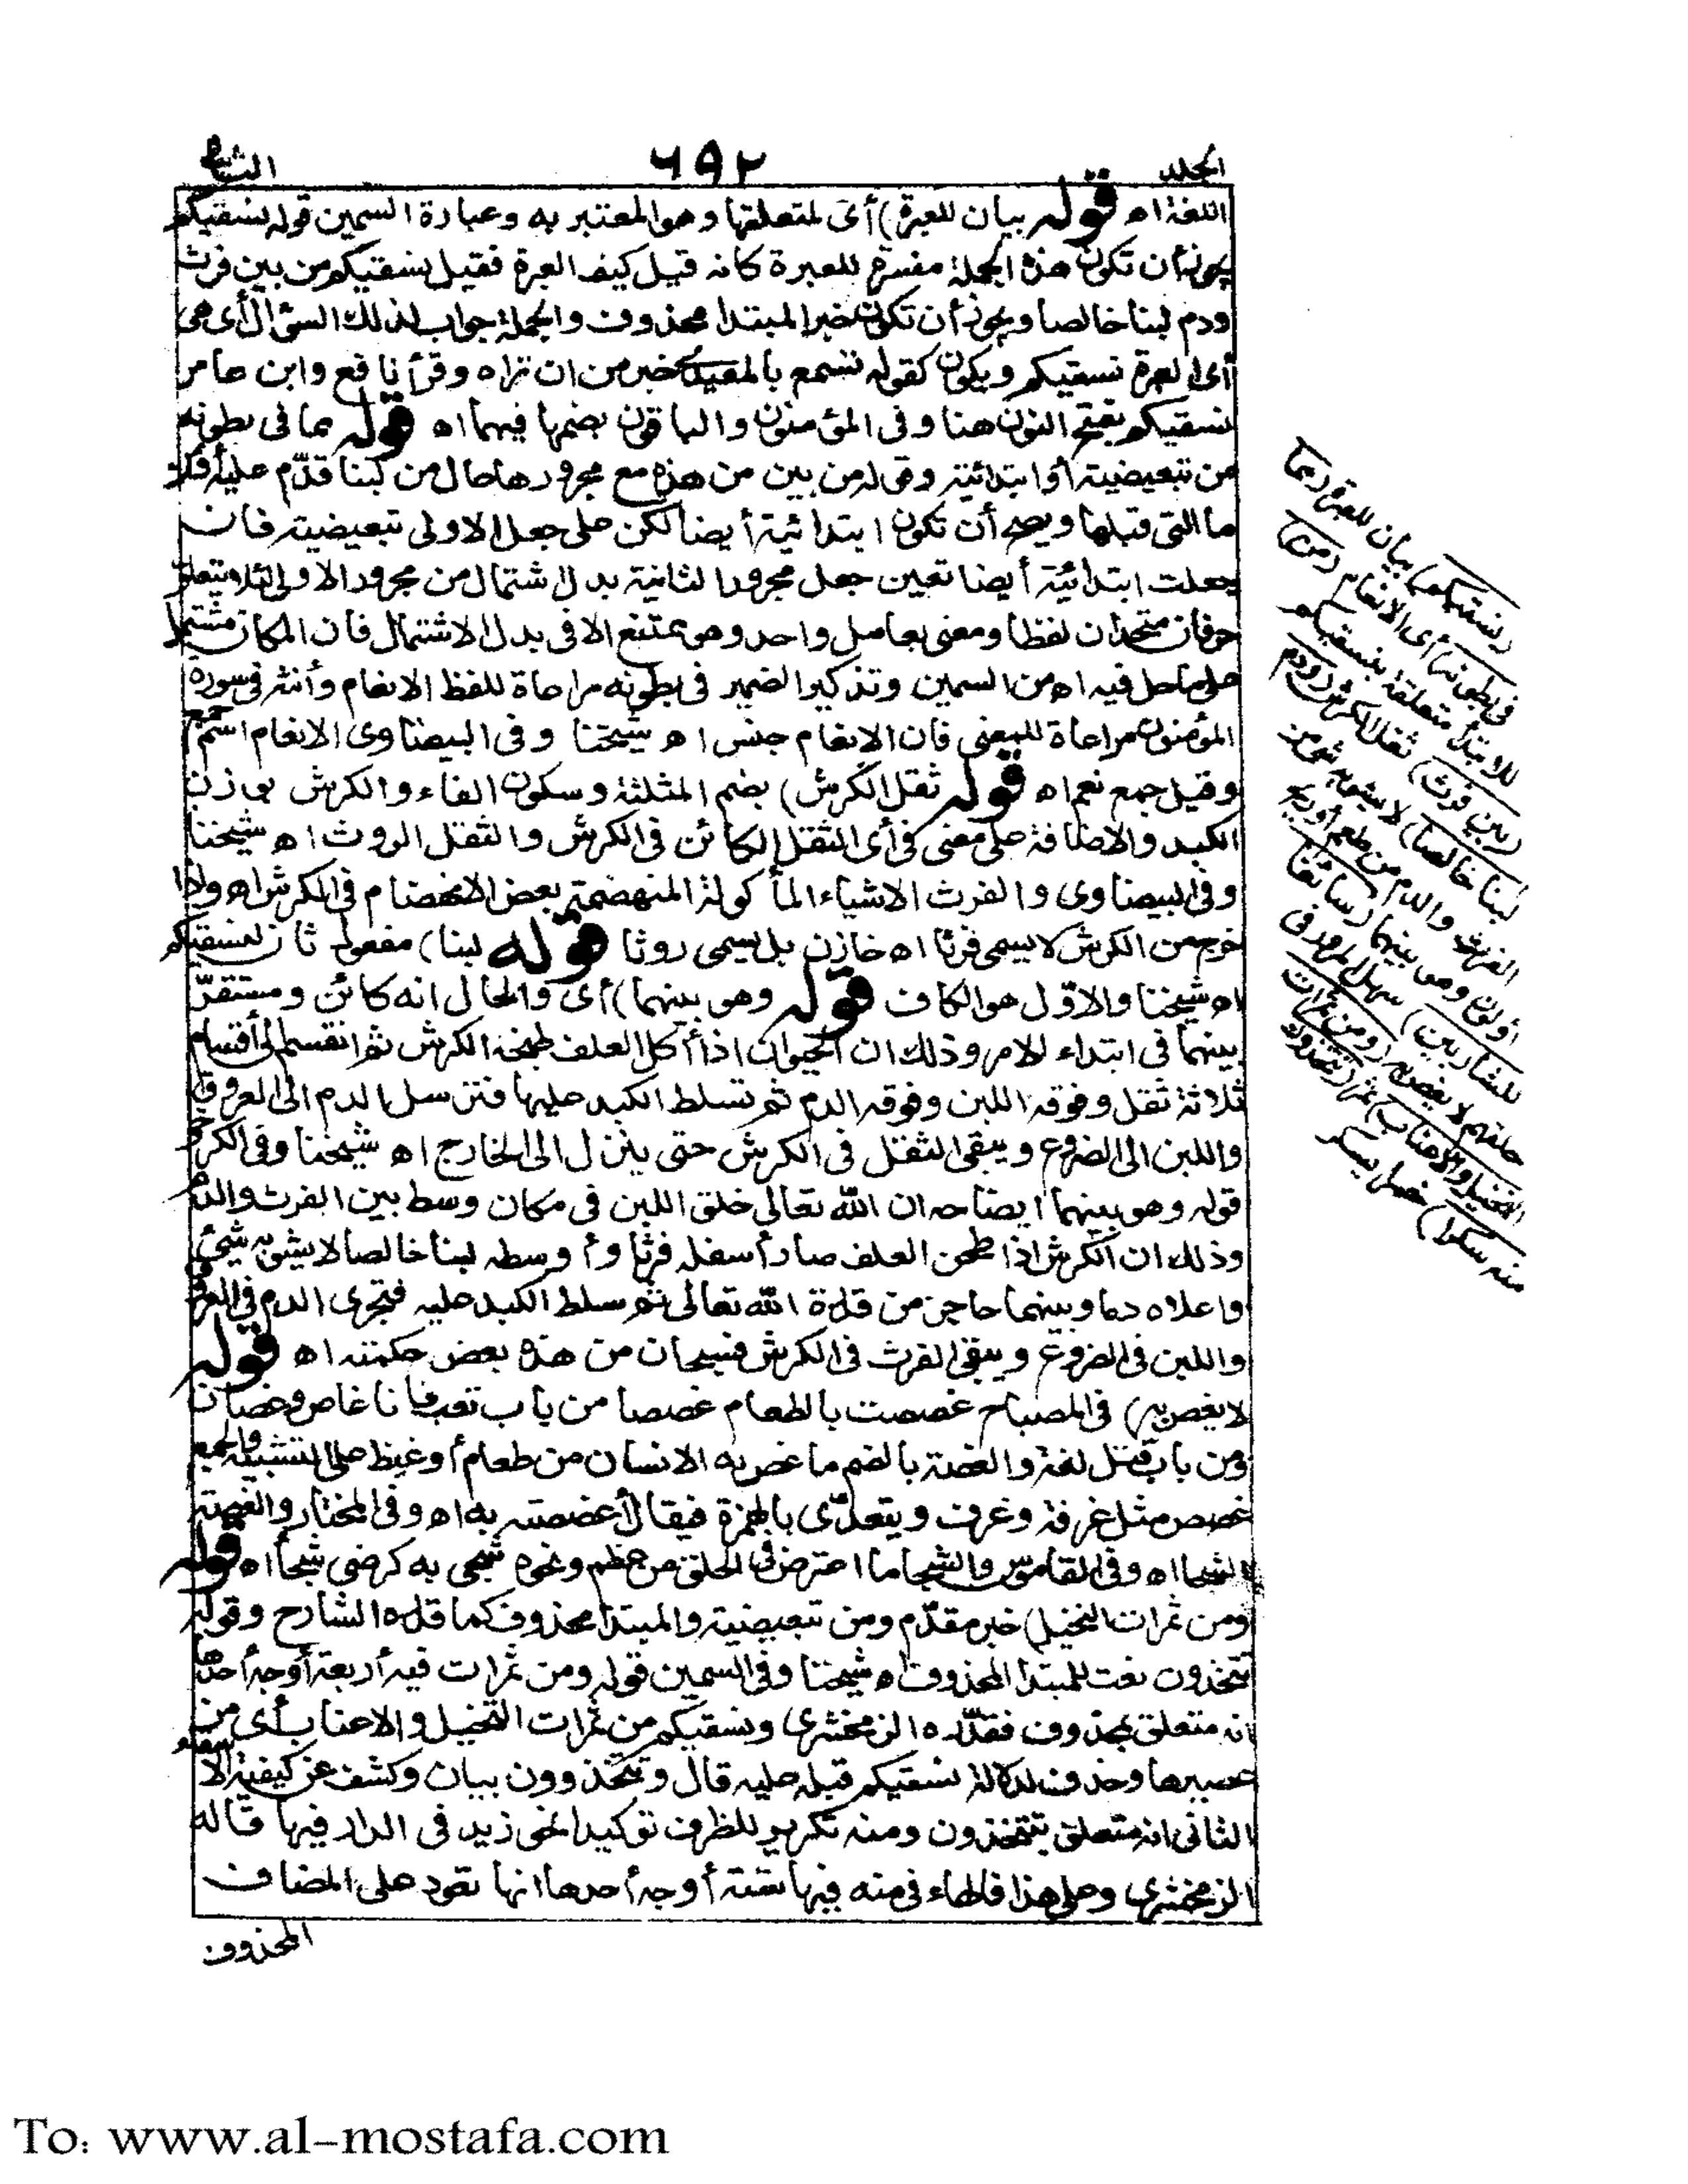 المجلد ٦٩٢ الثانى
اللغة اه قوله بيان للعبرة) أى لمتعلقها وهو المعتبر به وعبارة السمين قوله نسقيكم
يجوز أن تكون هذه الجملة مفسرة للعبرة كانه قيل كيف العبرة فقيل نسقيكم من بين فرث
ودم لبنا خالصا ويجوز أن تكون خبرا لمبتدا محذوف والجملة جواب لذلك السؤال أى هى
أى العبرة نسقيكم ويكون كقوله تسمع بالمعيدى خير من ان تراه وقرأ نافع وابن عامر
نسقيكم بفتح النون هنا وفى المؤمنون والباقون بضمها فيهما اه قوله مما فى بطونه
من تبعيضية أو ابتدائية وقوله من بين من هذه مع مجرورها حال من لبنا قدّم عليه
ما التى قبلها ويصح أن تكون ابتدائية أيضا لكن على جعل الاولى تبعيضية فان
جعلت ابتدائية أيضا تعين جعل مجرور الثانية بدل اشتمال من مجرور الاولى لئلا يتعلق
حرفان متحدان لفظا ومعنى بعامل واحد وهو ممتنع الا فى بدل الاشتمال فان المكان مشتمل
على ما حل فيه اه من السمين وتذكير الضمير فى بطونه مراعاة للفظ الانعام وأنث فى سورة
المؤمنون مراعاة للمعنى فان الانعام جنس اه شيخنا وفى البيضاوى الانعام اسم جمع
وقيل جمع نعم اه قوله ثفل الكرش) بضم المثلثة وسكون الفاء والكرش بوزن
الكبد والاضافة على معنى فى أى الثفل الكائن فى الكرش والثفل الروث اه شيخنا
وفى البيضاوى والفرث الاشياء المأكولة المنهضمة بعض الانهضام فى الكرش اه واذا
خرج من الكرش لا يسمى فرثا اه خازن بل يسمى روثا قوله لبنا) مفعول ثان لنسقيكم
اه شيخنا والاوّل هو الكاف قوله وهو بينهما) أى والحال انه كائن ومستقرّ
بينهما فى ابتداء الامر وذلك ان الحيوان اذا أكل العلف طبخه الكرش ثم انقسم الى أقسام
ثلاثة ثفل وفوقه اللبن وفوقه الدم ثم تسلط الكبد عليها فترسل الدم الى العروق
واللبن الى الضروع ويبقى الثفل فى الكرش حتى ينزل الى الخارج اه شيخنا وفى الكرخى
قوله وهو بينهما ايضاحه ان الله تعالى خلق اللبن فى مكان وسط بين الفرث والدم
وذلك ان الكرش اذا طحن العلف صار أسفله فرثا وأوسطه لبنا خالصا لا يشوبه شئ
واعلاه دما وبينهما حاجز من قدرة الله تعالى ثم سلط الكبد عليه فتجرى الدم فى العروق
واللبن فى الضروع ويبقى الفرث فى الكرش فسبحان من هذه بعض حكمته اه قوله
لا يغص به) فى المصباح غصصت بالطعام غصصا من باب تعب فانا غاص وغصان
ومن باب قتل لغة والغصة بالضم ما غص به الانسان من طعام أو غيظ على التشبيه والجمع
غصص مثل غرفة وغرف ويتعدّى بالهمزة فيقال أغصصته به اه وفى المختار والغصة
الشجا اه وفى القاموس والشجا ما اعترض فى الحلق من عظم ونحوه شجى به كرضى شجا اه قوله
ومن ثمرات النخيل) خبر مقدّم ومن تبعيضية والمبتدا محذوف كما قدره الشارح وقوله
تتخذون نعت للمبتدا المحذوف اه شيخنا وفى السمين قوله ومن ثمرات فيه أربعة أوجه أحدها
انه متعلق بمحذوف فقدّره الزمخشرى ونسقيكم من ثمرات النخيل والاعناب أى من
عصيرها وحذف لدلالة نسقيكم قبله عليه قال وتتخذون بيان وكشف عن كيفية الاسقاء
الثانى انه متعلق بتتخذون ومنه تكرير للظرف توكيدا نحو زيد فى الدار فيها قاله
الزمخشرى وعلى هذا فالهاء فى منه فيها ستة أوجه أحدها انها تعود على المضاف
المحذوف
(نسقيكم) بيان للعبرة (مما
فى بطونه) أى الانعام (من)
للابتداء متعلقة بنسقيكم
(بين فرث) ثفل الكرش (ودم
لبنا خالصا) لا يشوبه شئ من
الفرث والدم من طعم أو ريح
أو لون وهو بينهما (سائغا
للشاربين) سهل المرور فى
حلقهم لا يغص به (ومن ثمرات
النخيل والاعناب) ثمر (تتخذون
منه سكرا) خمرا يسكر
To: www.al-mostafa.com